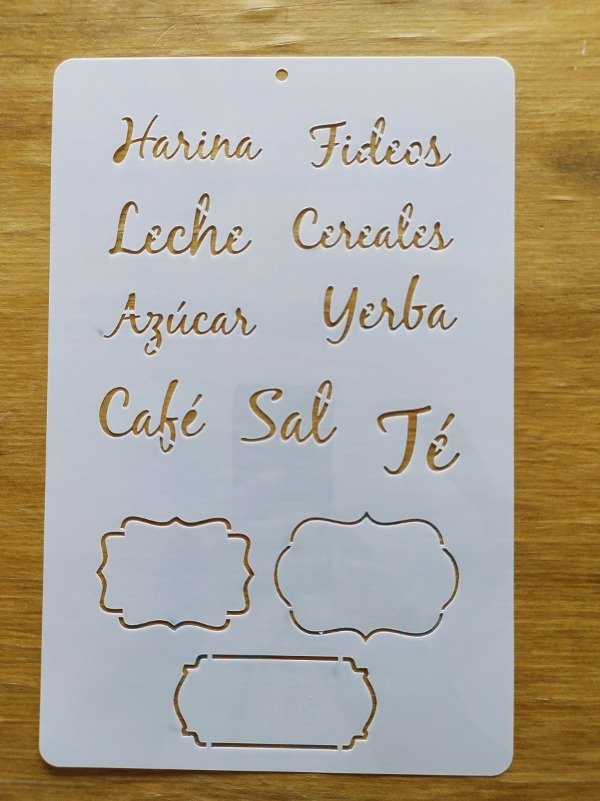 Harina Fideos
Leche Cereales
Azúcar Yerba
Café Sal Té